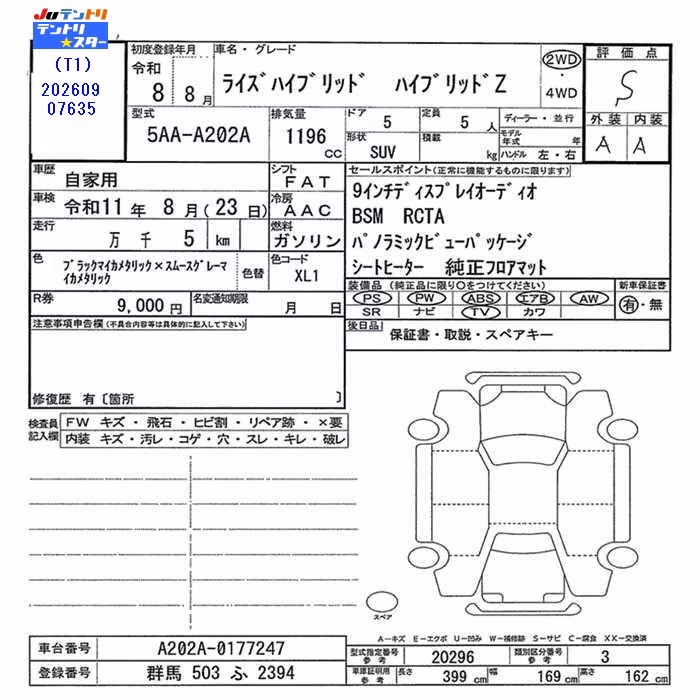 Juテントリ
テントリ
★スター
(T1)
202609
07635
初度登録年月
令和
8 8月
車名・グレード
ライズハイブリッド ハイブリッドZ
2WD
・
4WD
評価点
S
外装 内装
A A
型式
5AA-A202A
排気量
1196
CC
ドア
5
定員
5 人
形状
SUV
積載
kg
ディーラー・並行
モデル年式 年
ハンドル 左・右
車歴
自家用
シフト
FAT
車検
令和11年 8月(23日)
冷房
AAC
走行
万 千 5 km
燃料
ガソリン
色
ブラックマイカメタリック×スムースグレーマ
イカメタリック
色替
色コード
XL1
R券
9,000円
名変通知期限
月 日
セールスポイント(正常に機能するものに限ります)
9インチディスプレイオーディオ
BSM RCTA
パノラミックビューパッケージ
シートヒーター 純正フロアマット
装備品(純正品に限り○をつけてください)
PS PW ABS エアB AW
SR ナビ TV カワ
新車保証書
有・無
後日品
保証書・取説・スペアキー
注意事項申告欄(不具合内容等は具体的に記入して下さい)
修復歴 有〔箇所 〕
検査員
記入欄
FW キズ・飛石・ヒビ割・リペア跡・×要
内装 キズ・汚レ・コゲ・穴・スレ・キレ・破レ
スペア
A－キズ E－エクボ U－凹み W－補修跡 S－サビ C－腐食 XX－交換済
車台番号
A202A-0177247
登録番号
群馬 503 ふ 2394
型式指定番号
参考
20296
類別区分番号
参考
3
車庫証明用
参考
長さ
399 cm
幅
169 cm
高さ
162 cm